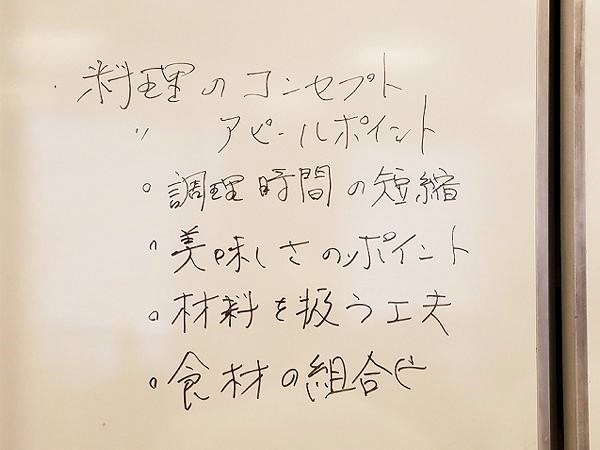 ・料理のコンセプト
〃 アピールポイント
○調理時間の短縮
○美味しさのポイント
○材料を扱う工夫
○食材の組合せ